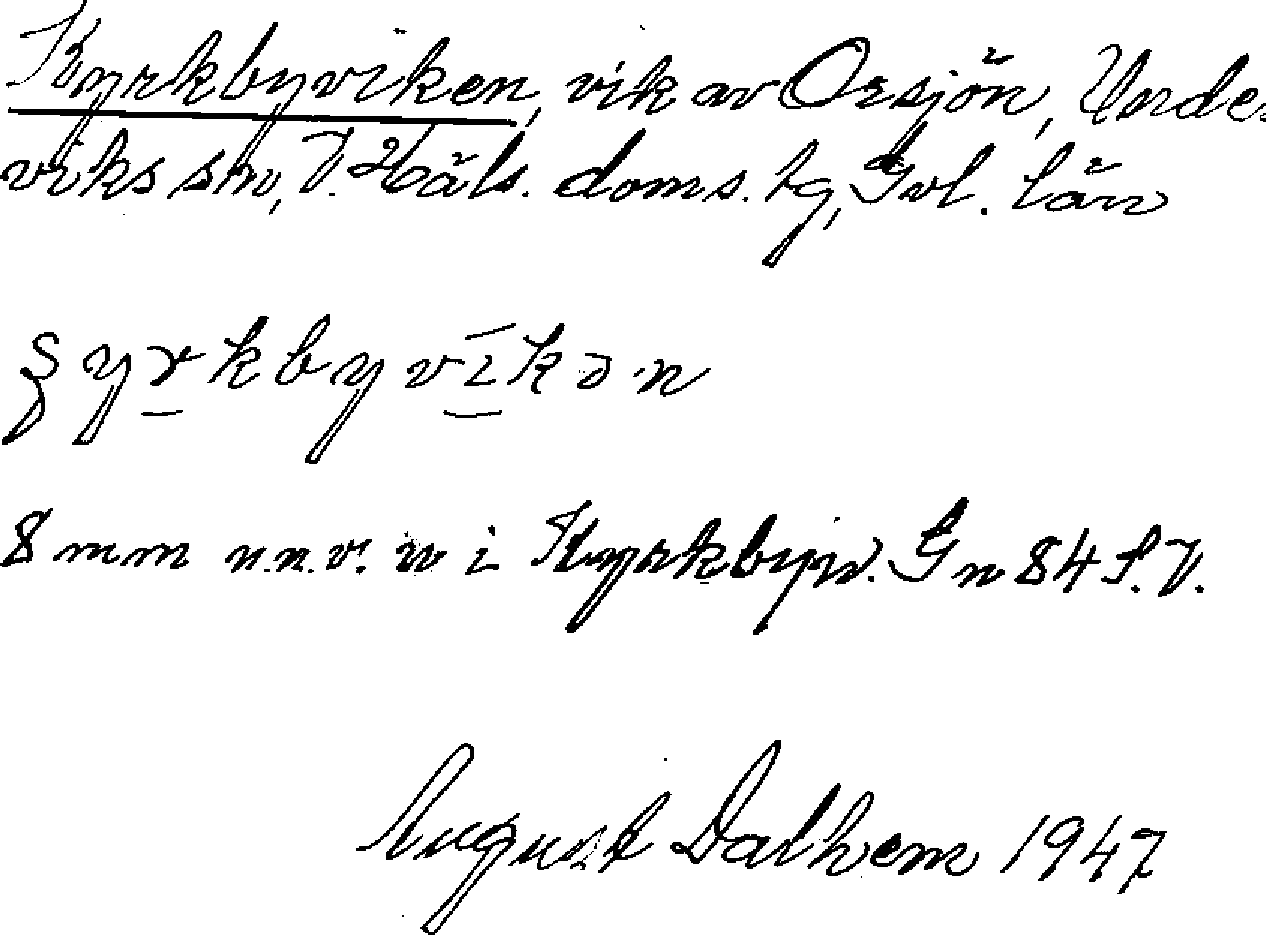 Kyrkbyviken, vik av Orsjön, Unde-
viks sn, V. Häls. doms. tg, Gvl. län
ʂyrkbyvīkən
8 mm n.n.v. v i Kyrkbyv. Gn 84 S.V.
August Dalhem 1947